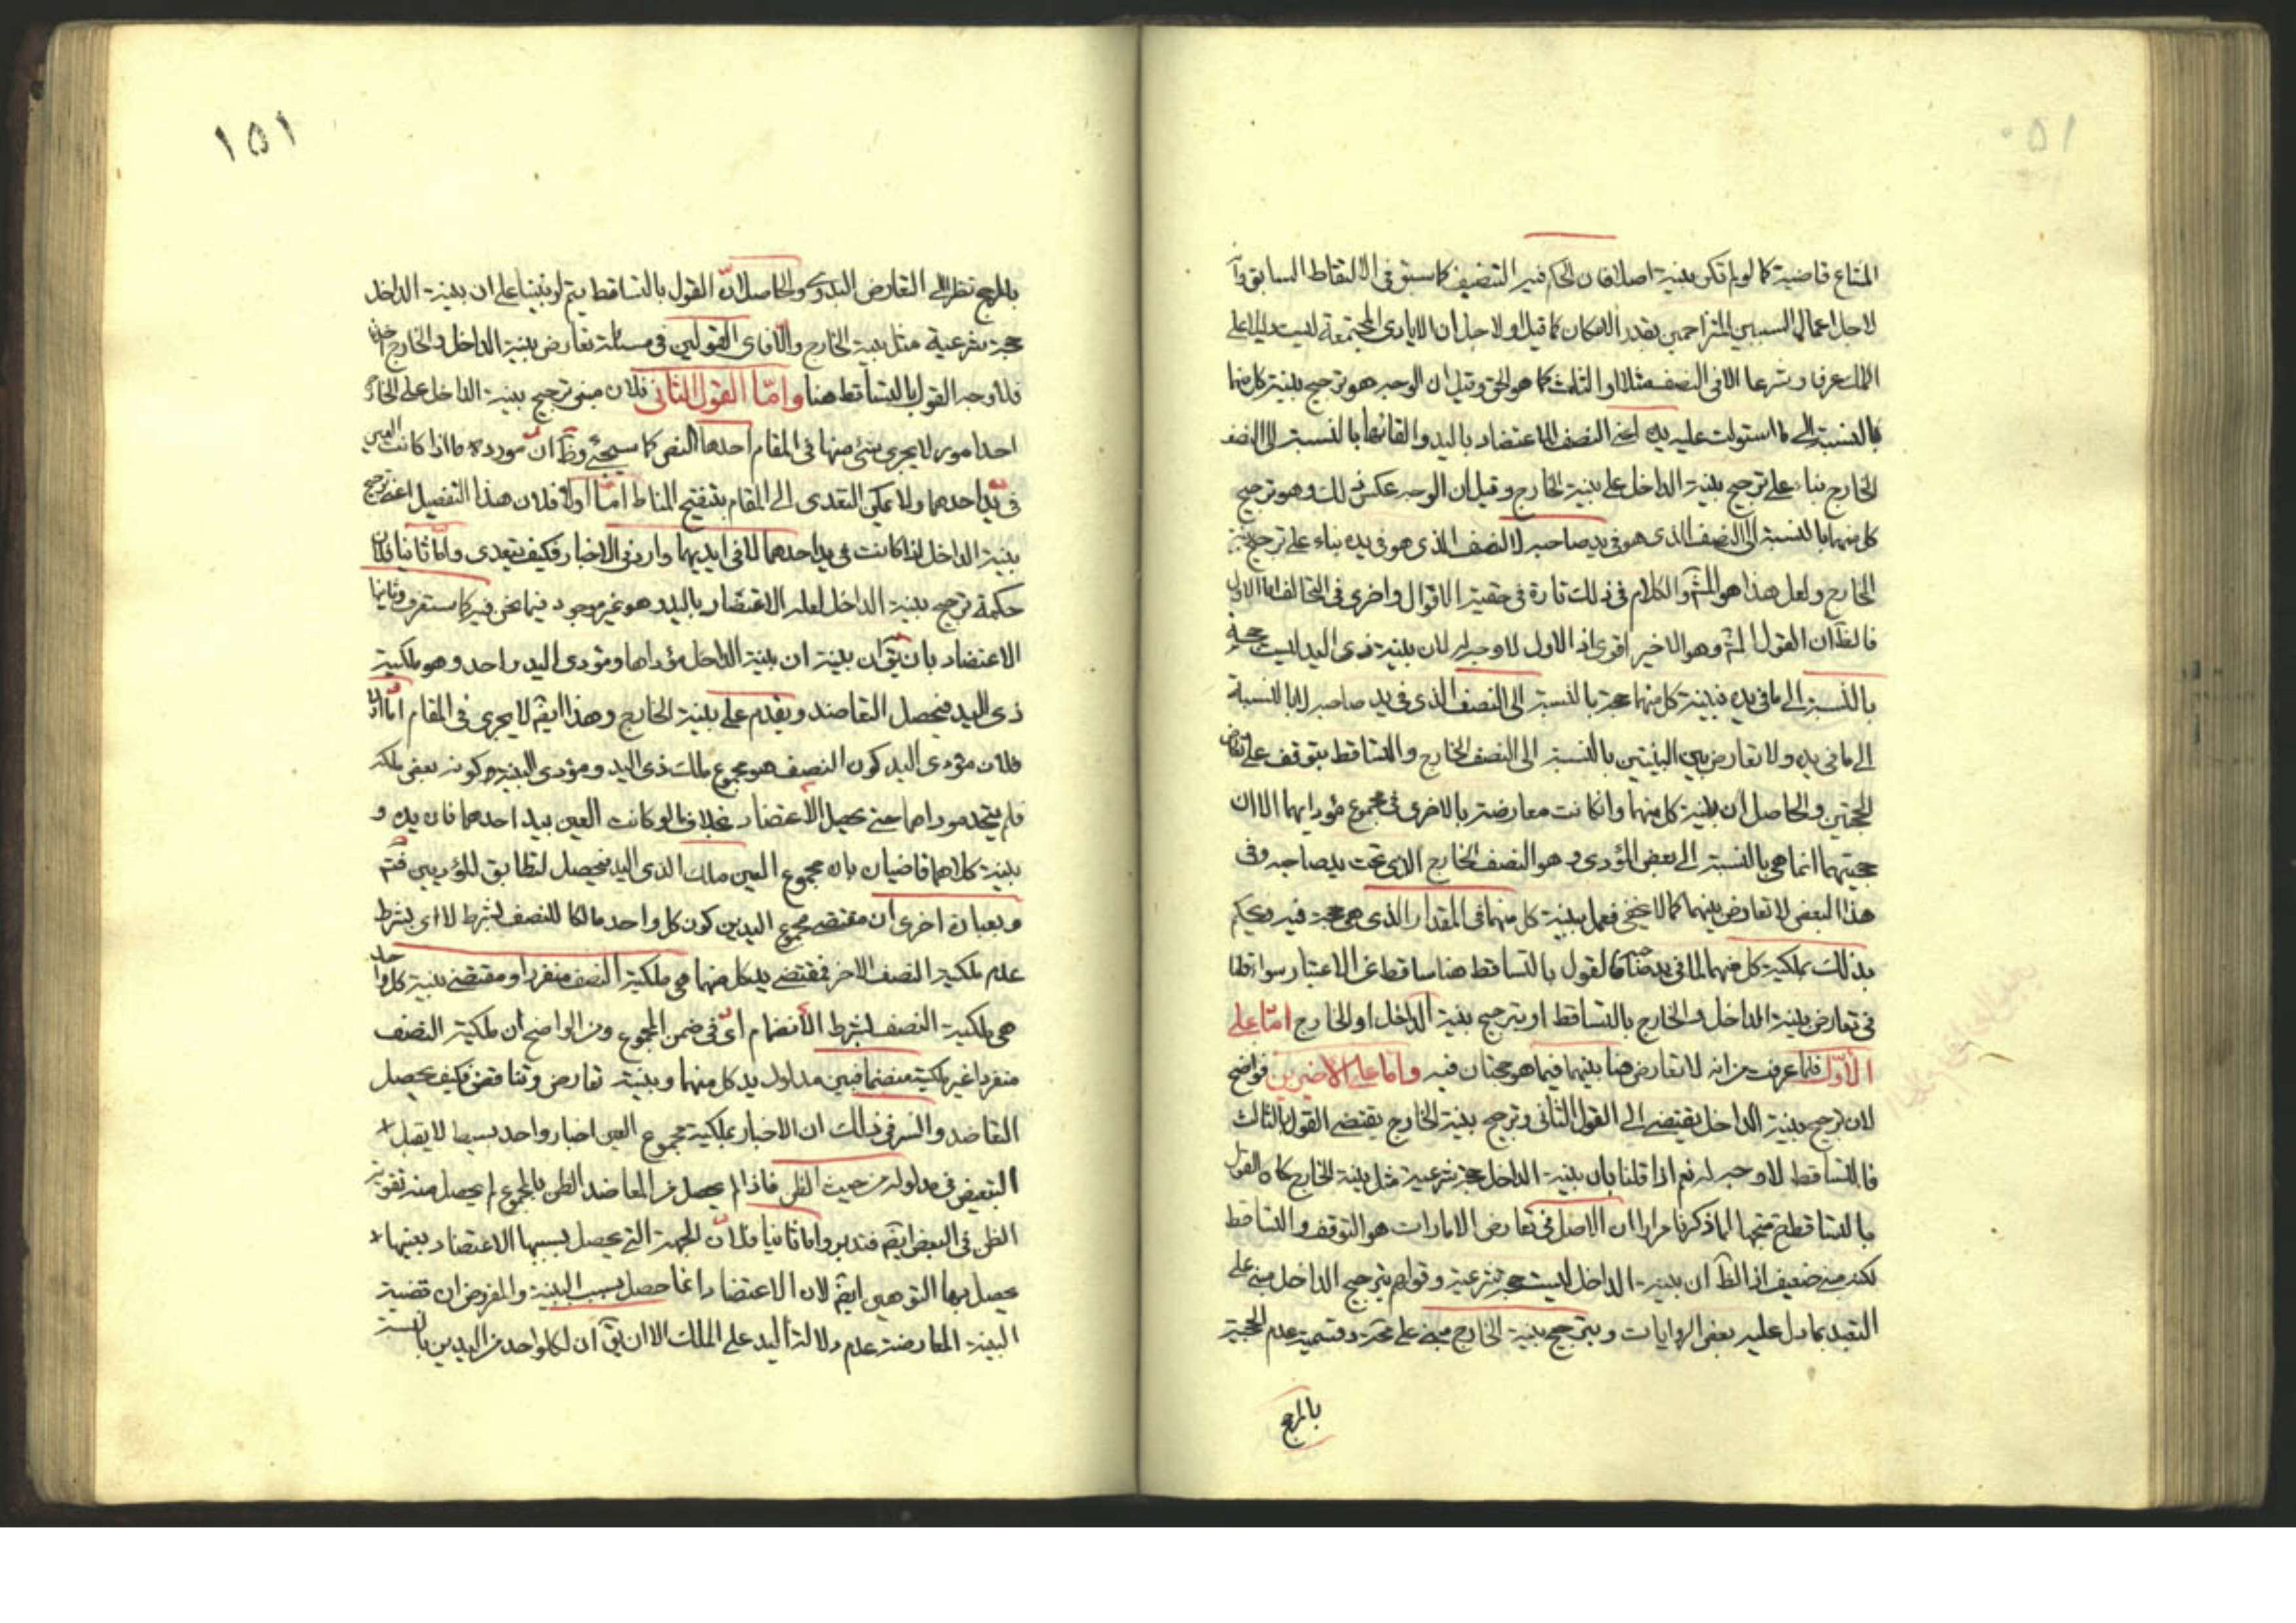 ١٥٠
المتاع قاضية كما لو لم تكن بينة اصلا فان الحكم فيه التنصيف كما سبق في الالتقاط السابق واما
لاجل اعمال السببين المتزاحمين بقدر الامكان كما قيل او لاجل ان الايادي المجتمعة ليست دليلا على
الملك عرفا وشرعا الا في النصف مثلا او الثلث كما هو الحق وقيل ان الوجه هو ترجيح بينة كل منهما
بالنسبة الى ما استولت عليه يده اعني النصف للاعتضاد باليد والقائها بالنسبة الى النصف
الخارج بناء على ترجيح بينة الداخل على بينة الخارج وقيل ان الوجه عكس ذلك وهو ترجيح
كل منهما بالنسبة الى النصف الذي هو في يد صاحبه لا النصف الذي هو في يده بناء على ترجيح بينة
الخارج ولعل هذا هو المشهـ والكلام في ذلك تارة في حقية الاقوال واخرى في التحالف اما الاول
فالظ ان القول المشهـ وهو الاخير اقوى اذ الاول لا وجه له لان بينة ذي اليد ليست حجة
بالنسبة الى ما في يده فبينة كل منهما حجة بالنسبة الى النصف الذي في يد صاحبه لا بالنسبة
الى ما في يده ولا تعارض بين البينتين بالنسبة الى النصف الخارج والتساقط يتوقف على تعارض
الحجتين والحاصل ان بينة كل منهما وان كانت معارضة بالاخرى في مجموع مؤداهما الا ان
حجيتهما انما هي بالنسبة الى بعض المؤدى وهو النصف الخارج الذي تحت يد صاحبه وفي
هذا البعض لا تعارض بينهما كما لا يخفى فعمل ببينة كل منهما في المقدار الذي هي حجة فيه ويحكم
بذلك بملكية كل منهما لما في يد صاحبه فالقول بالتساقط هنا ساقط عن الاعتبار سواء قلنا
في تعارض بينة الداخل والخارج بالتساقط او بترجيح بينة الداخل او الخارج امّا على
الأوّل فلما عرفت من انه لا تعارض هنا بينهما فيما هو حجتان فيه واما على الاخيرين فواضح
لان ترجيح بينة الداخل يقتضي الى القول الثاني وترجيح بينة الخارج يقتضي القول بالثالث
فالتساقط لا وجه له نعم اذا قلنا بان بينة الداخل حجة شرعية مثل بينة الخارج كان القول
بالتساقط ح متجها لما ذكرنا مرارا ان الاصل في تعارض الامارات هو التوقف والتساقط
لكنه ضعيف اذ الظ ان بينة الداخل ليست حجة شرعية وقولهم بترجيح الداخل مبني على
التعبد بما دل عليه بعض الروايات وبترجيح بينة الخارج مبني على مجرد تسمية عدم الحجية
بالمرجح
١٥١
بالمرجح نظرا الى التعارض البدوي والحاصل انّ القول بالتساقط يتم لو بنينا على ان بينة الداخل
حجة شرعية مثل بينة الخارج والا فاي القولين في مسئلة تعارض بينة الداخل والخارج اخترنا
فلا وجه القول بالتساقط هنا وامّا القول الثاني فلان مبنى ترجيح بينة الداخل على الخارج
احد امور لا يجري شئ منها في المقام احدها النص كما سيجئ وظ انّ مورده ما اذا كانت العين
في يد احدهما ولا يمكن التعدي الى المقام بتنقيح المناط امّا اولا فلان هذا التفصيل اعني ترجيح
بينة الداخل اذا كانت في يد احدهما لا في ايديهما وارد في الاخبار فكيف يتعدى وامّا ثانيا فلان
حكمة ترجيح بينة الداخل لعله الاعتضاد باليد وهو غير موجود فيما نحن فيه كما ستعرف وثانيها
الاعتضاد بان يقال ان بينة الداخل مؤداها ومؤدى اليد واحد وهو ملكية
ذي اليد فيحصل التعاضد ويقدم على بينة الخارج وهذا ايضا لا يجري في المقام امّا اولا
فلان مؤدى اليد كون النصف هو مجموع ملك ذي اليد ومؤدى البينة كونه بعض ملكه
فلم يتحد مؤداهما حتى يحصل الاعتضاد بخلاف ما لو كانت العين بيد احدهما فان يده و
بينة كلاهما قاضيان بان مجموع العين ملك لذي اليد فيحصل لتطابق المؤديين فتم
وبعبارة اخرى ان مقتضى مجموع اليدين كون كل واحد مالكا للنصف بشرط لا اي بشرط
عدم ملكية النصف الاخر فمقتضى يد كل منهما هي ملكية النصف منفردا ومقتضى بينة كل واحد
هي ملكية النصف بشرط الأنضمام اي في ضمن المجموع ومن الواضح ان ملكية النصف
منفردا غير ملكيته منضما فبين مدلول يد كل منهما وبينته تعارض وتناقض فكيف يحصل
التعاضد والسر في ذلك ان الاخبار بملكية مجموع العين اخبار واحد بسيط لا يقبل
التبعيض في مدلوله من حيث الظن فاذا لم يحصل من المعاضد الظن بالمجموع لم يحصل منه تقوية
الظن في البعض ايضا فتدبر واما ثانيا فلانّ الجهة التي يحصل بسببها الاعتضاد بعينها
يحصل بها التوهين ايضا لان الاعتضاد انما حصل بسبب البينة والمفروض ان قضية
البينة المعارضة عدم دلالة اليد على الملك الا ان يقال ان لكل واحد من اليدين بالنسبة